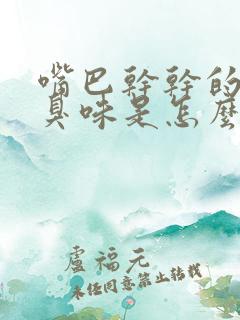 嘴巴幹幹的
臭味是怎麼
盧福元
未经同意禁止转载